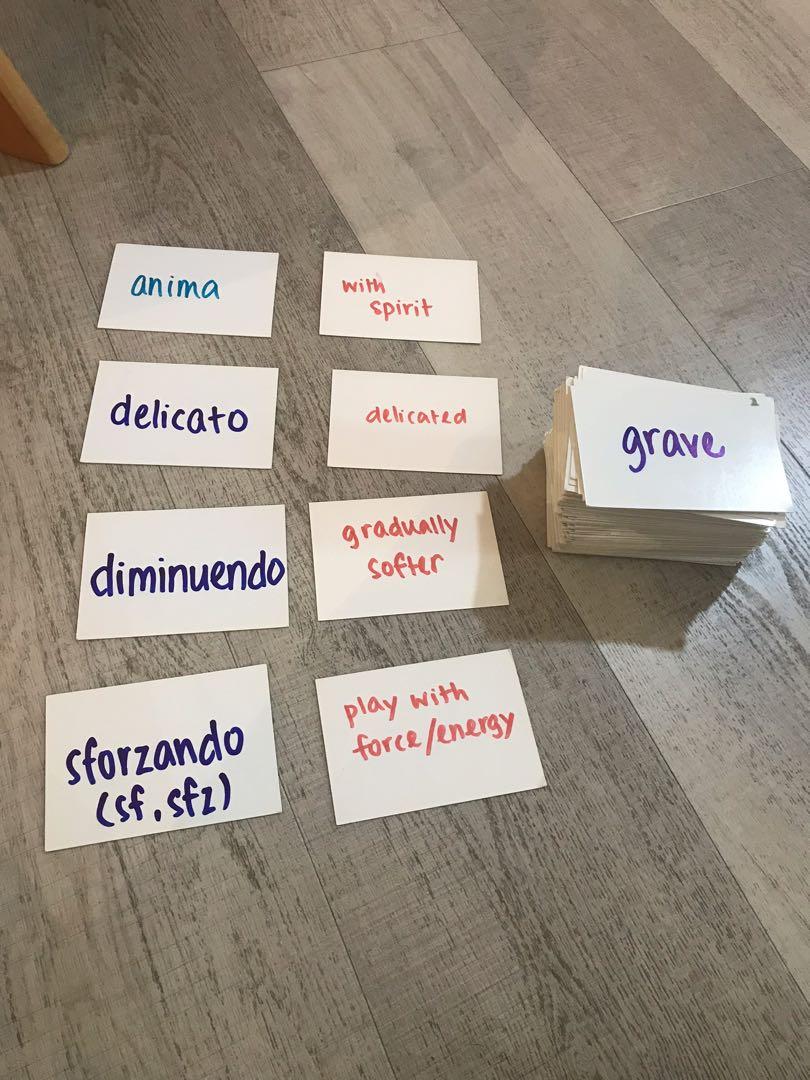 anima
with
spirit
delicato
delicated
diminuendo
gradually
softer
sforzando
(sf, sfz)
play with
force/energy
grave